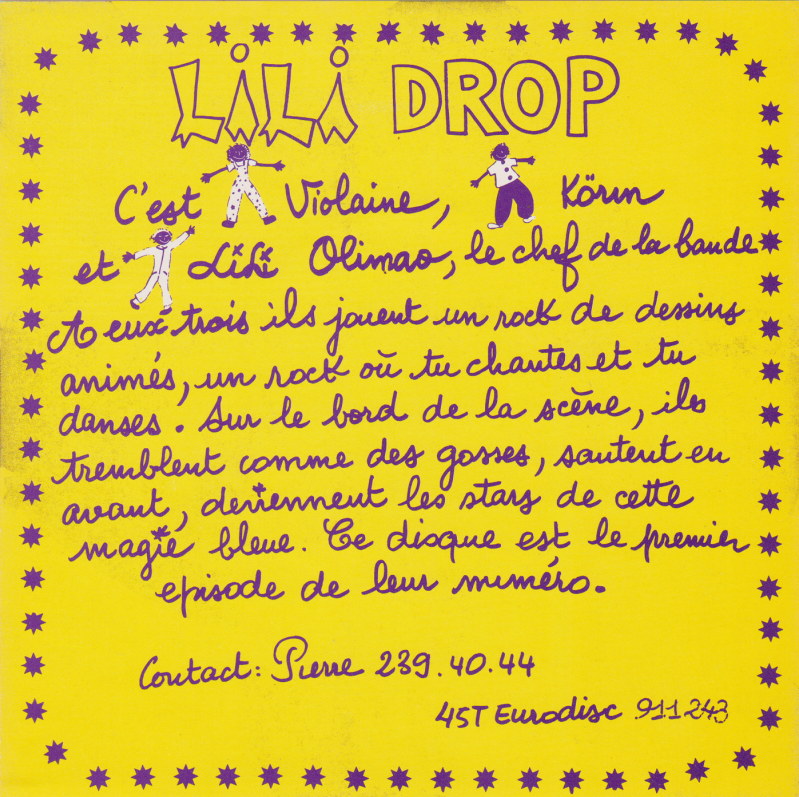 LiLi DROP
C'est Violaine, Körin
et LiLi Olimao, le chef de la bande
A eux trois ils jouent un rock de dessins
animés, un rock où tu chantes et tu
danses. Sur le bord de la scène, ils
tremblent comme des gosses, sautent en
avant, deviennent les stars de cette
magie bleue. Ce disque est le premier
episode de leur numéro.
Contact: Pierre 239.40.44
45T Eurodisc 911 243